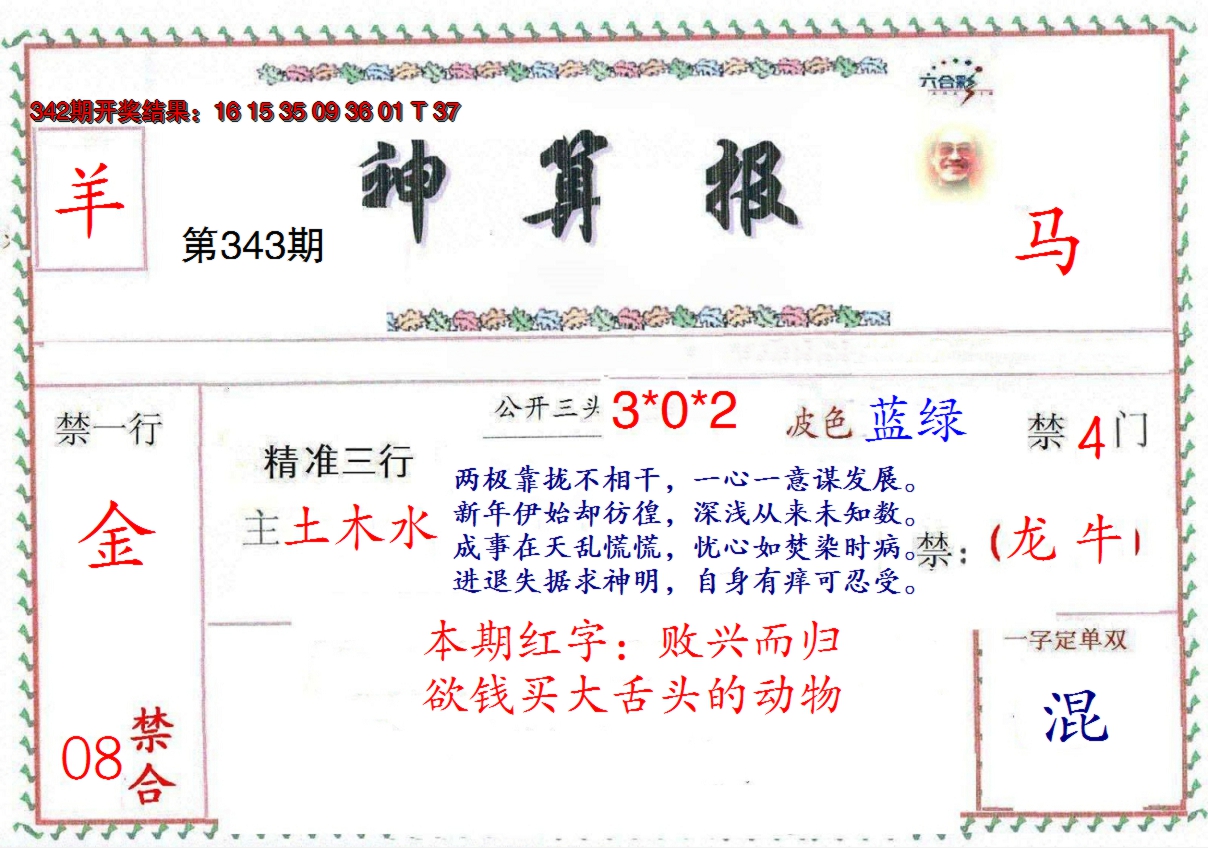 六合彩
342期开奖结果：16 15 35 09 36 01 T 37
羊
神算报
第343期
马
禁一行
金
08
禁合
精准三行
主土木水
公开三头 3*0*2
波色 蓝绿
禁4门
两极靠拢不相干，一心一意谋发展。
新年伊始却彷徨，深浅从来未知数。
成事在天乱慌慌，忧心如焚染时病。
进退失据求神明，自身有痒可忍受。
禁：(龙 牛)
本期红字：败兴而归
欲钱买大舌头的动物
一字定单双
混